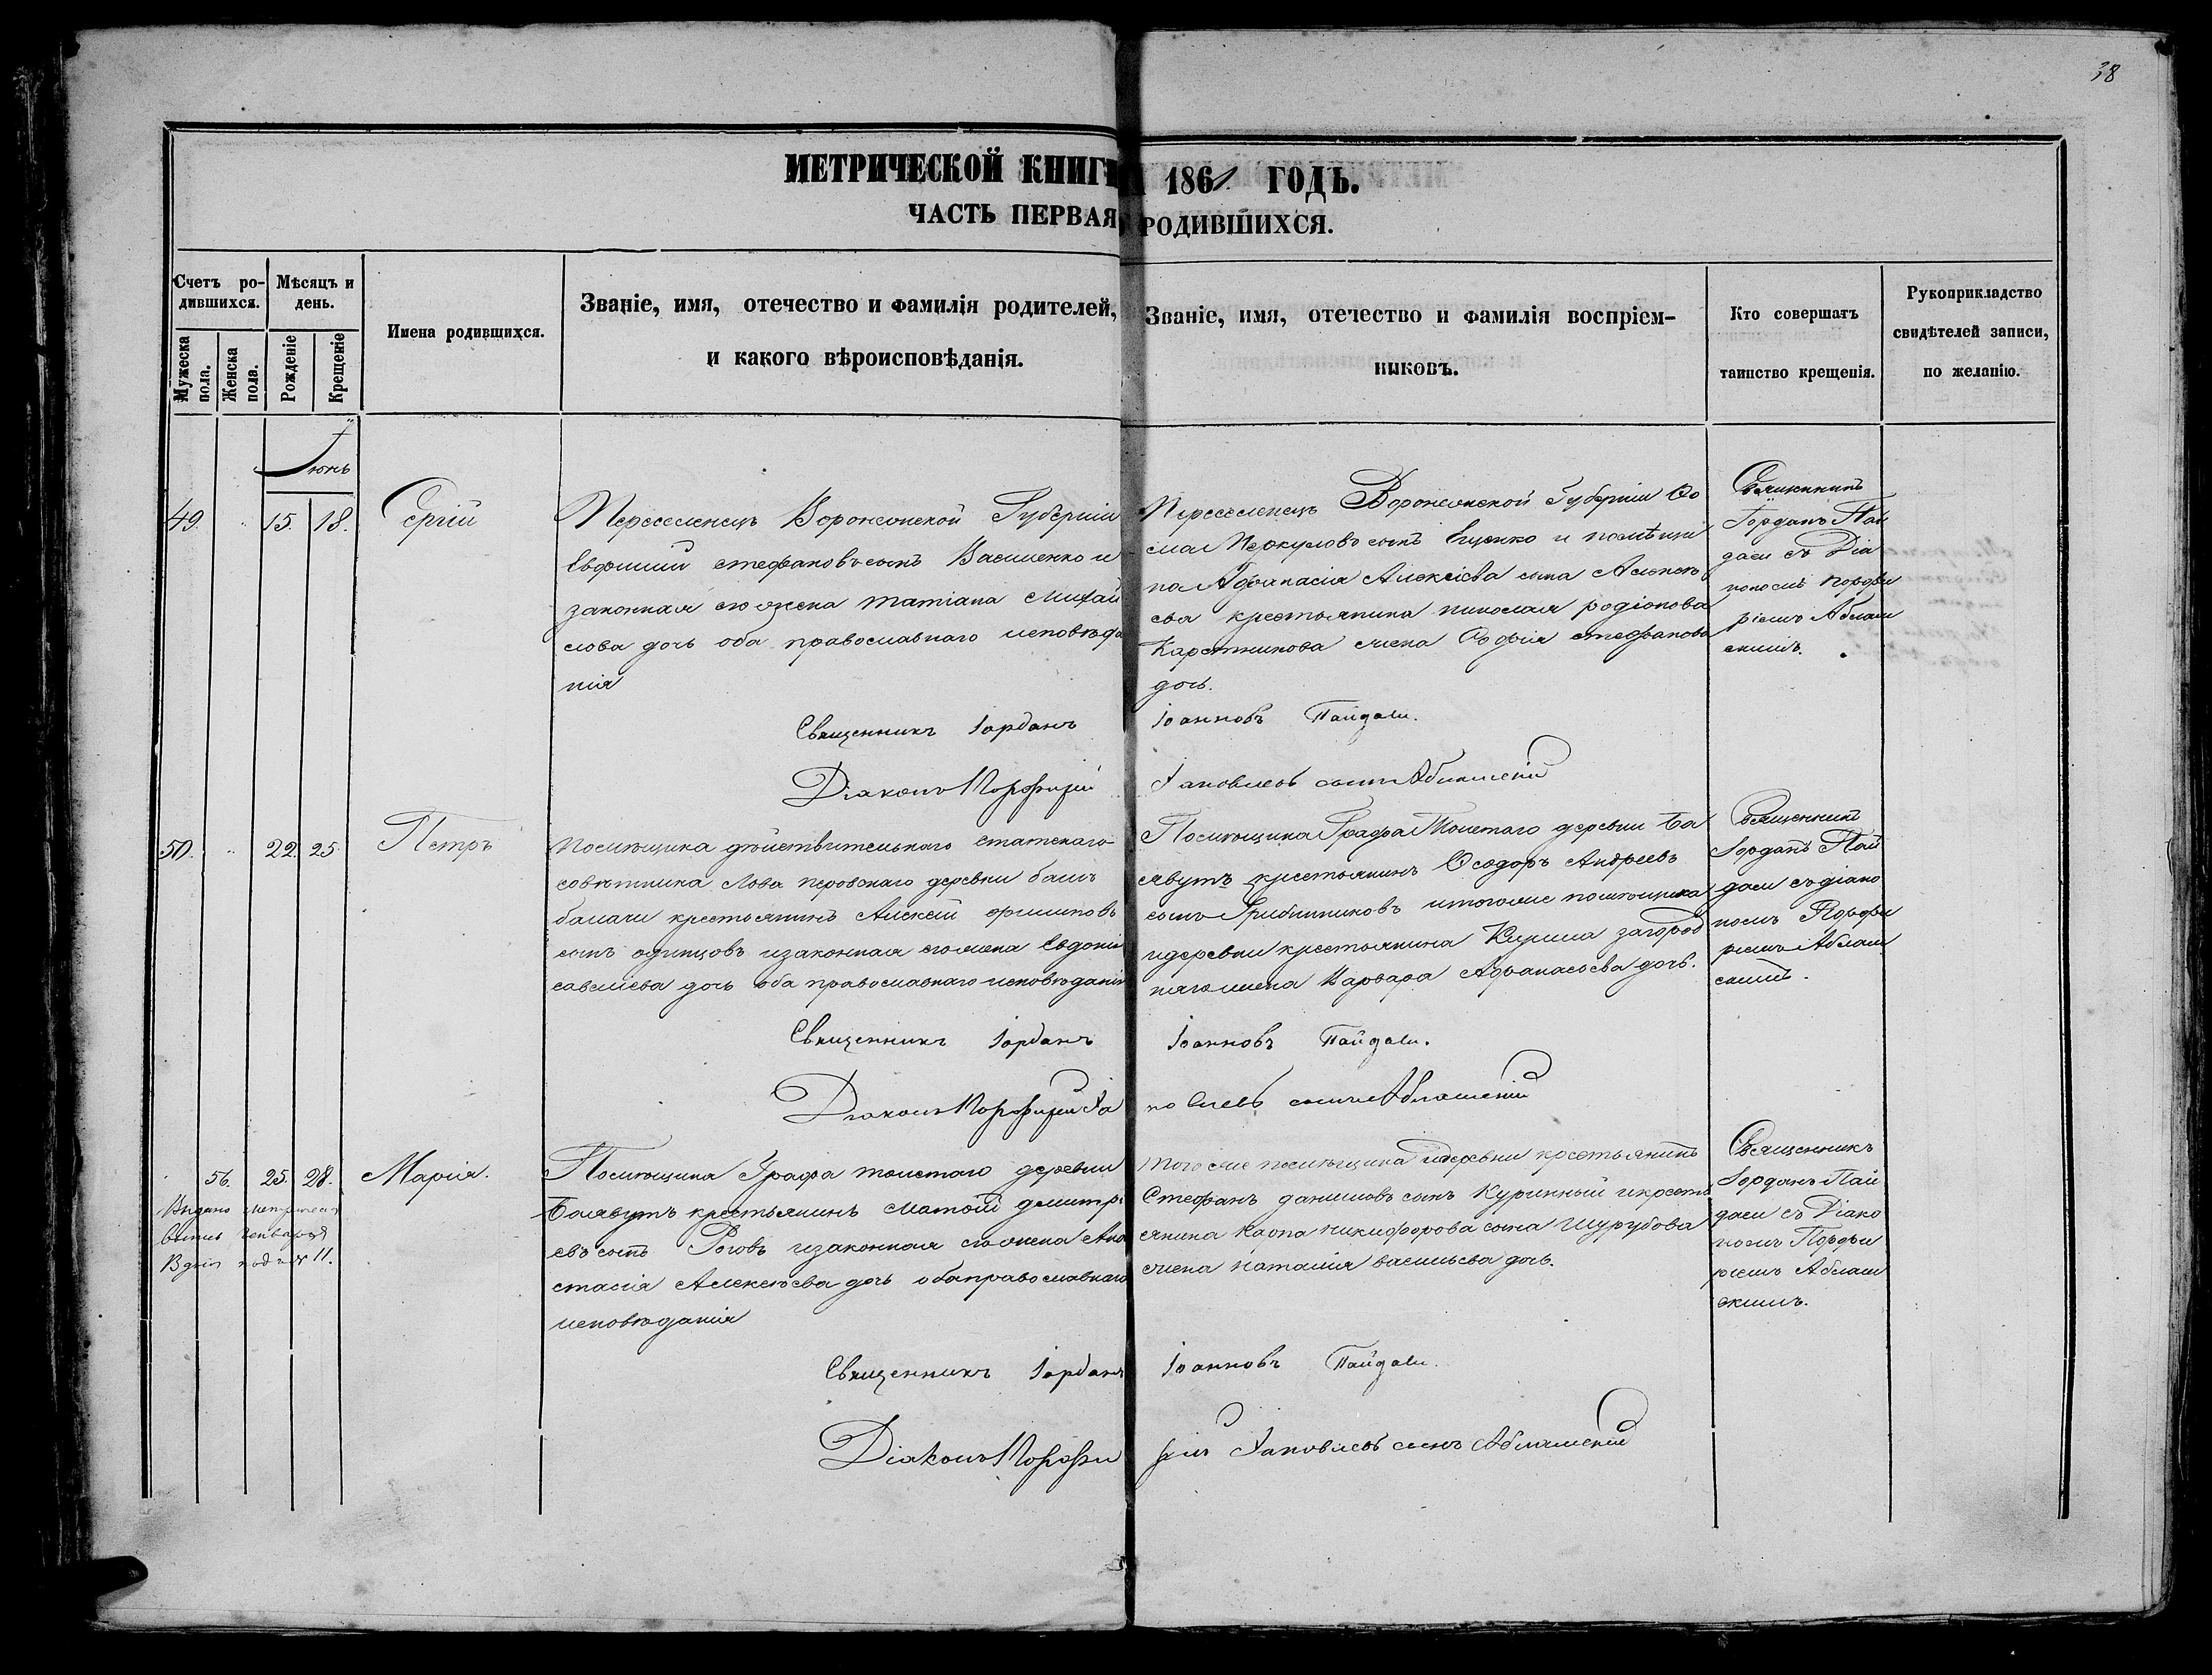 38
МЕТРИЧЕСКОЙ КНИГИ 1861 ГОДЪ.
ЧАСТЬ ПЕРВАЯ, РОДИВШИХСЯ.
Счетъ ро-дившихся.
Мужеска пола.
Женска пола.
Мѣсяцъ и день.
Рожденіе
Крещеніе
Имена родившихся.
Званіе, имя, отечество и фамилія родителей,
и какого вѣроисповѣданія.
Званіе, имя, отечество и фамилія воспріем-
никовъ.
Кто совершатъ
таинство крещенія.
Рукоприкладство
свидѣтелей записи,
по желанію.
Іюнь
49. 15. 18. Сергій
Переселенецъ Воронежской Губерніи
Евфимий стефановъ сынъ Василенко и
законная его жена татіана михай
лова дочь оба православнаго исповѣда
нія
Переселенецъ Воронежской Губерніи Ѳо
ма сынъ Ищенко и помѣщи
ка Афанасія Алексіева сына Алексѣ
ева крестьянина николая родіонова
жена Софія стефанова
дочь.
Священникъ
Іорданъ Пай
даси съ Діа
кономъ порфи
ріемъ Аблаш
скимъ.
Священникъ Іорданъ Іоанновъ Пайдаси.
Діаконъ Порфирій Іаковлевъ сынъ Аблашскій
50. 22. 25. Петръ
Помѣщика дѣйствительнаго статскаго
совѣтника Льва перовскаго деревни башъ
балачи крестьянинъ Алексѣй филиповъ
сынъ одинцовъ и законная его жена Евдокія
савельева дочь оба православнаго исповѣданія
Помѣщика Графа Толстаго деревни Ба
явутъ крестьянинъ Ѳеодоръ Андреевъ
сынъ Грибинниковъ и тогоже помѣщика
и деревни крестьянина Кирила загород
няго жена Варвара Афанасьева дочь.
Священникъ
Іорданъ Пай
даси съ діако
номъ Порфи
ріемъ Аблаш
скимъ.
Священникъ Іорданъ Іоанновъ Пайдаси.
Діаконъ Порфирій Іаковлевъ сынъ Аблашскій
56. 25. 28. Марія.
Выдано метрическ
выпись генваря
в дня под № 11.
Помѣщика Графа толстаго деревни
Баявутъ крестьянинъ матѳій димитрі
евъ сынъ Роговъ и законная его жена Ана
стасія Алексѣева дочь оба православнаго
исповѣданія
Того же помѣщика и деревни крестьянинъ
Стефанъ даниловъ сынъ Куринный и кресть
янина Карпа никифорова сына Шурубова
жена Наталія васильева дочь.
Священникъ
Іорданъ Пай
даси съ Діако
номъ Порфи
ріемъ Аблаш
скимъ.
Священникъ Іорданъ Іоанновъ Пайдаси.
Діаконъ Порфирій Іаковлевъ сынъ Аблашскій